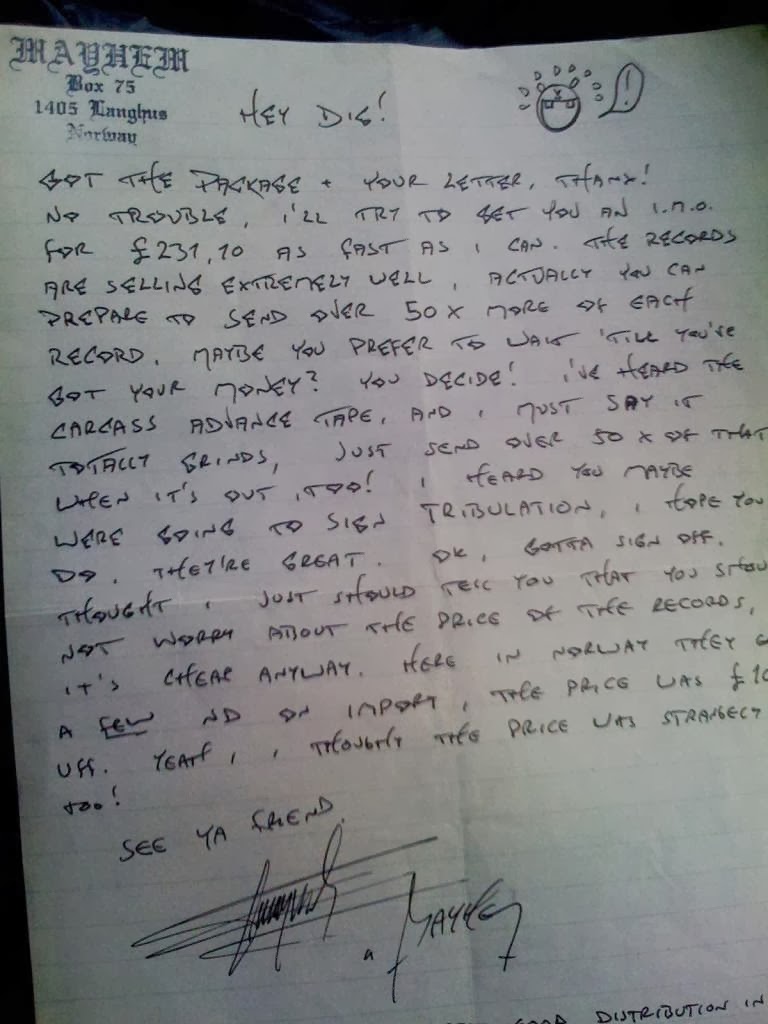 MAYHEM
Box 75
1405 Langhus
Norway
HEY DIG!
!
GOT THE PACKAGE + YOUR LETTER, THANX!
NO TROUBLE, I'LL TRY TO GET YOU AN I.M.O.
FOR £231,10 AS FAST AS I CAN. THE RECORDS
ARE SELLING EXTREMELY WELL, ACTUALLY YOU CAN
PREPARE TO SEND OVER 50 X MORE OF EACH
RECORD. MAYBE YOU PREFER TO WAIT 'TILL YOU'VE
GOT YOUR MONEY? YOU DECIDE! I'VE HEARD THE
CARCASS ADVANCE TAPE, AND I MUST SAY IT
TOTALLY GRINDS, JUST SEND OVER 50 X OF THAT
WHEN IT'S OUT, TOO! I HEARD YOU MAYBE
WERE GOING TO SIGN TRIBULATION, I HOPE YOU
DO. THEY'RE GREAT. OK, GOTTA SIGN OFF.
THOUGHT I JUST SHOULD TELL YOU THAT YOU SHOU
NOT WORRY ABOUT THE PRICE OF THE RECORDS,
IT'S CHEAP ANYWAY. HERE IN NORWAY THEY
A FEW ND ON IMPORT, THE PRICE WAS £10
UFF. YEAH, I THOUGHT THE PRICE WAS STRANGELY
TOO!
SEE YA FRIEND.
MAYHEM
GOOD DISTRIBUTION IN